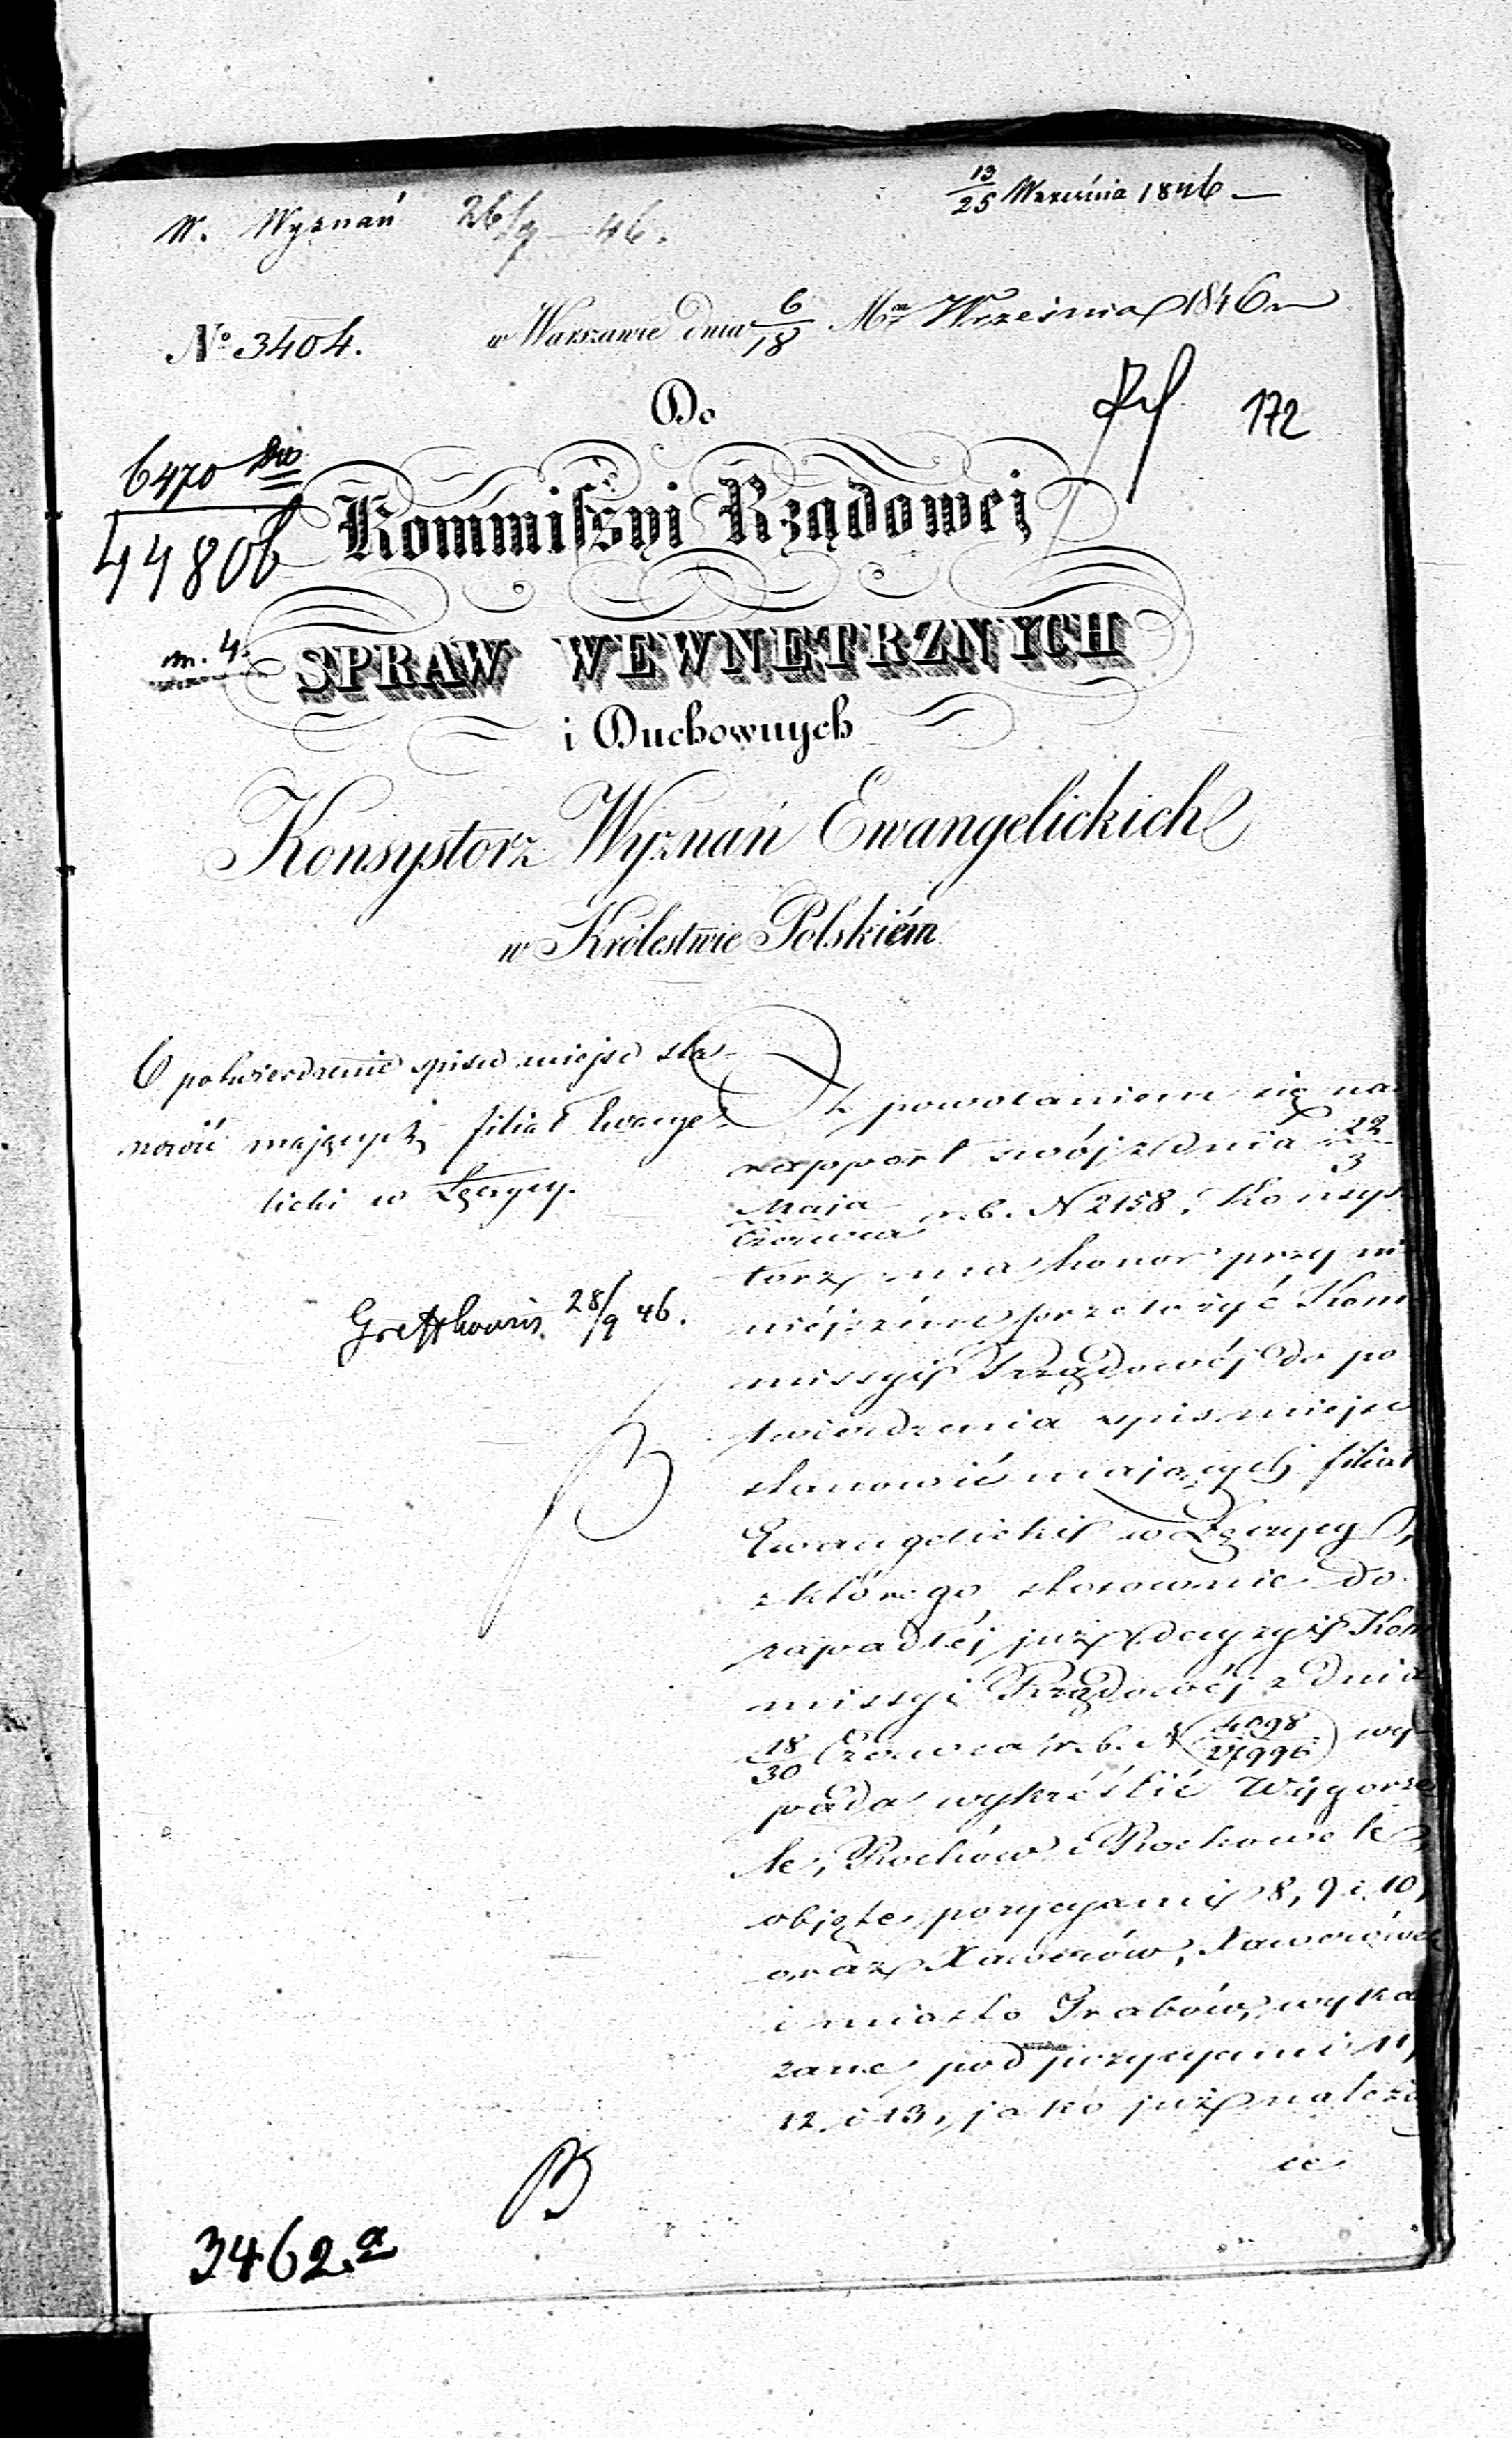 13/25 Września 1846
W. Wyznań 26/9 46.
w Warszawie dnia 6/18 Mca Wrzesnia 1846
No 3404.
Do
172
6470
44806
Kommissyi Rządowej
m. 4.
SPRAW WEWNETRZNYCH
i Duchownych
Konsystorz Wyznań Ewangelickich
w Królestwie Polskiém
O potwierdzenie spisu miejsc sta-
nowić mających filiał Ewange-
licki w Łęczycy.
28/9 46.
Z powołaniem się na
rapport swój z dnia 22/3
Maja/Czerwca r. b. N 2158, Konsys-
torz ma honor przy ni-
niéjszém przełożyć Kom
missyi Rządowéj do po
twierdzenia spis miejsc
stanowić mających filiał
Ewangelicki w Łęczycy,
z którego stosownie do
zapadłéj już decyzyi Kom
missyi Rządowéj z dnia
18/30 Czerwca r. b. N 4098/27996 wy-
pada wykréślić Wygorze
le, Rochów i Rochowek,
objęte pozycyami 8, 9 i 10,
oraz Xawerów, Xawerówek
i miasto Grabów, wyka
zane pod pozycyami 11,
12 i 13, jako już należą
ce
3462.a